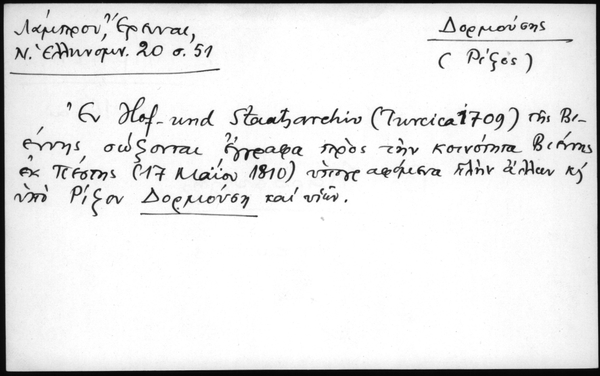 Λάμπρου, Ἔρευναι,
Ν. Ἑλληνομν. 20 σ. 51
Δορμούσης
(Ρίζος)
Ἐν Hof- und Staatsarchiv (Turcica 1709) τῆς Βι-
έννης σώζονται ἔγγραφα πρὸς τὴν κοινότητα Βιέννης
ἐκ Πέστης (17 Μαΐου 1810) ὑπογραφόμενα πλὴν ἄλλων κ
ὑπὸ Ρίζου Δορμούση καὶ υἱῶν.